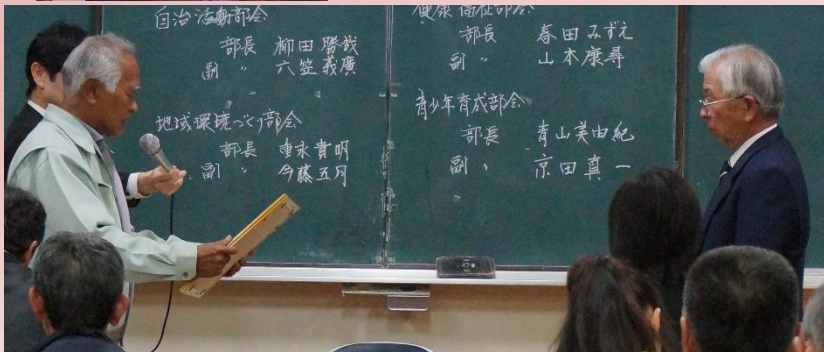 自治活動部会
部長 柳田勝哉
副 〃 六笠義廣
地域環境づくり部会
部長 重永貴明
副 〃 今藤五月
健康福祉部会
部長 春田みずえ
副 〃 山本康尋
青少年育成部会
部長 青山美由紀
副 〃 京田真一